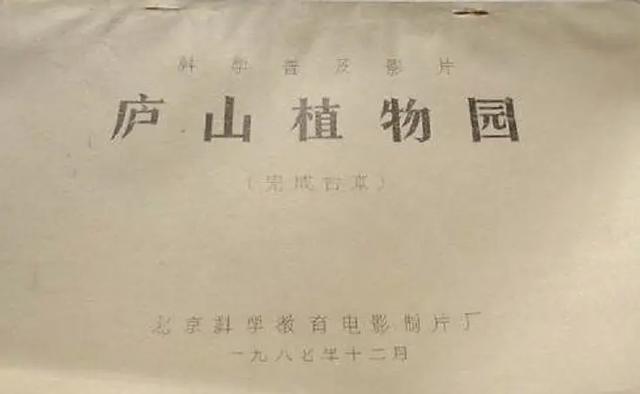 科学普及影片
庐山植物园
（完成台本）
北京科学教育电影制片厂
一九八七年十二月